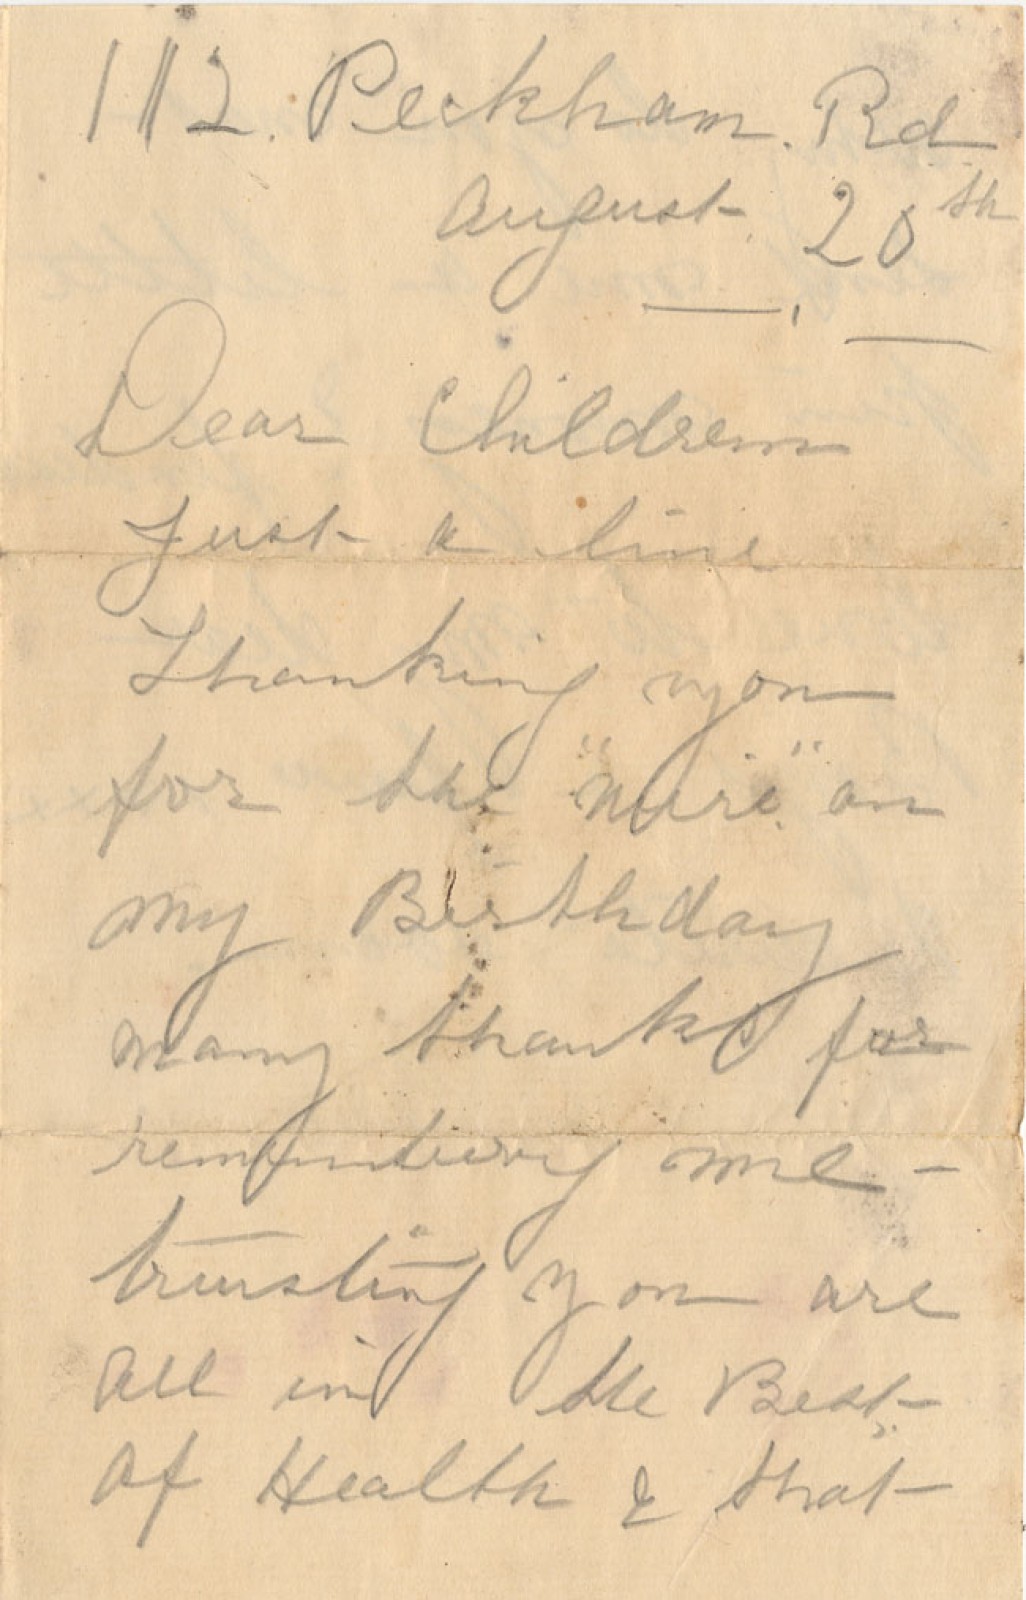 112. Peckham. Rd
August. 20th
Dear Children
Just a line
Thanking you
for the "Wire" on
my Birthday
many thanks for
remembering me -
trusting you are
all in the Best
of Health & that